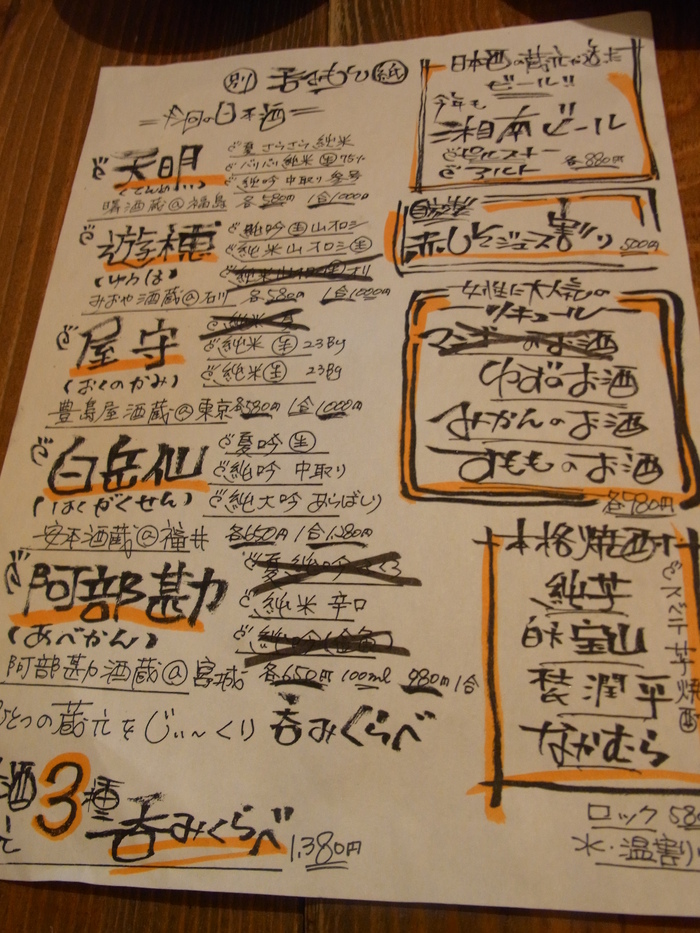 別 呑みもの 紙
今回の日本酒
天明
(てんめい)
夏 さらさら 純米
純吟 中取り 参号
曙酒蔵@福島 各580円 1合1000円
遊穂
(ゆうほ)
純吟 生 山オロシ
純米山オロシ 生
みおや酒蔵@石川 各580円 1合1000円
屋守
(おくのかみ)
純米 生 23By
純米 生 23By
豊島屋酒蔵@東京 各580円 1合1000円
白岳仙
(はくがくせん)
夏吟 生
純吟 中取り
純大吟 あらばしり
安本酒蔵@福井 各650円 1合1,180円
阿部勘
(あべかん)
純米 辛口
阿部勘酒蔵@宮城 各650円 100ml 980円 1合
ひとつの蔵元をじぃ〜くり 呑みくらべ
酒3種 呑みくらべ 1,380円
日本酒の蔵元が造った
ビール!!
今年も
湘南ビール
ピルスナー
アルト 各880円
自家製
赤しそジュース割り 500円
女性に大人気の
リキュール
マンゴーのお酒
ゆずのお酒
みかんのお酒
すもものお酒
各580円
本格焼酎
純芋
宝山
潤平
なかむら
ロック 580
水・温割り